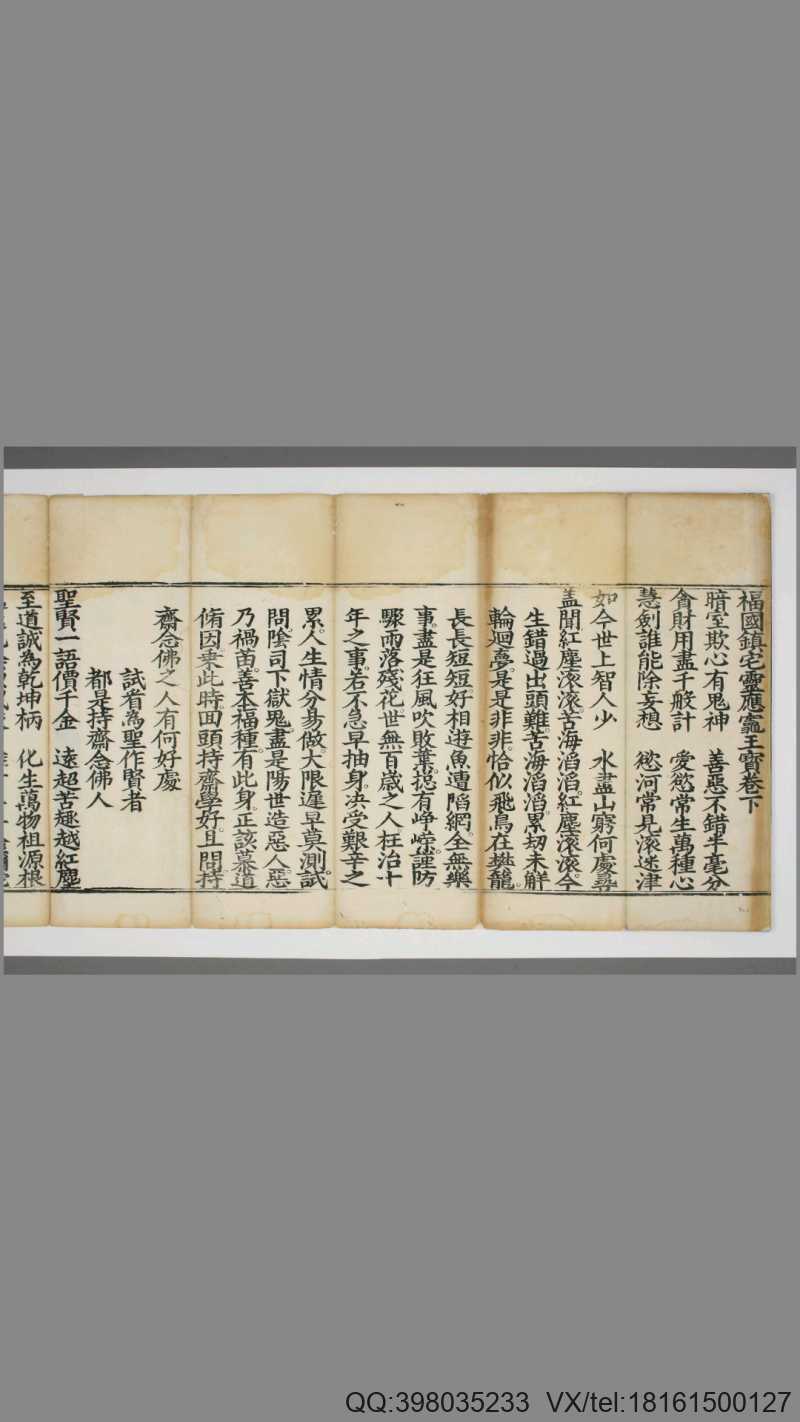 福國鎮宅靈應竈王寶卷下
暗室欺心有鬼神　善惡不錯半毫分
貪財用盡千般計　愛慾常生萬種心
慧劍誰能除妄想　慾河常見滾迷津
如今世上智人少　水盡山窮何處尋
盖聞紅塵滚滚。苦海滔滔。紅塵滚滚。今
生錯過出頭難。苦海滔滔。累刼未觧
輪廻夢。是是非非。恰似飛鳥在樊籠。
長長短短。好相遊魚遭陷網。全無樂
事。盡是狂風吹敗葉。揔有崢嶸。謹防
驟雨落殘花。世無百歲之人。枉治十
年之事。若不急早抽身。决受艱辛之
累。人生情分昜做。大限遲早莫測。試
問陰司下獄鬼。盡是陽世造惡人。惡
乃禍苗。善本福種。有此身。正該慕道
脩因。乗此時。囬頭持齋學好。且問持
齋念佛之人有何好處
試看為聖作賢者
都是持齋念佛人
聖賢一語價千金　遠超苦趣越紅塵
至道誠為乾坤柄　化生萬物祖源根
QQ:398035233 VX/tel:18161500127